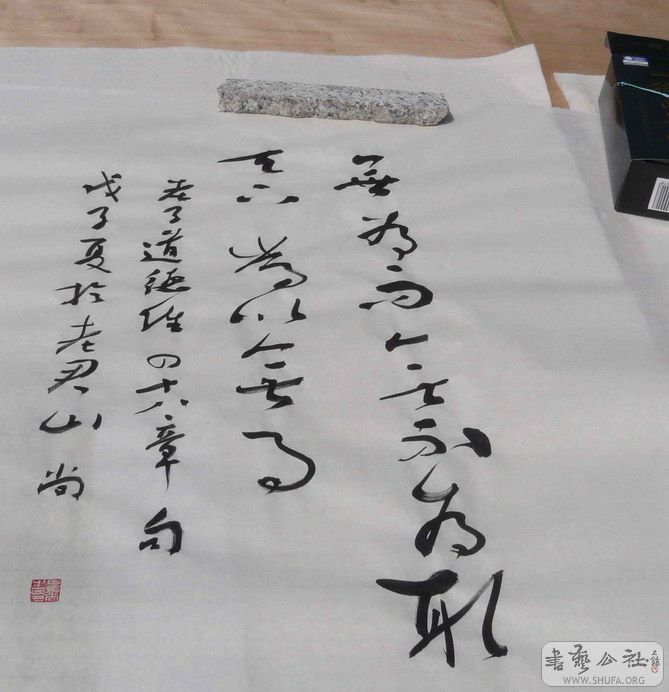 無為而無不為取
天下常以無事
老子道德經四十八章句
戊子夏於老君山 尚
書藝公社
WWW.SHUFA.ORG